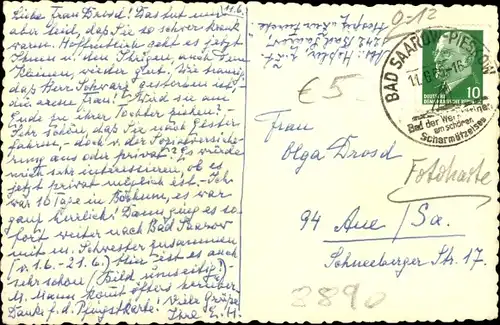 Liebe Frau Drosd! Das tut mir
aber leid, daß Sie so schwer krank
waren. Hoffentlich geht es jetzt
Ihnen u. den Ihrigen, auch der
Kleinen, wieder gut. Wie traurig,
daß Herr Schwarz gestorben ist,
die arme Frau! Wird sie am
Ende zu ihrer Tochter ziehen? -
Sehr schön, daß Sie nach Elster
fahren, - doch v. der Sozialversiche-
rung aus oder privat? Es würde
mich sehr interessieren, ob es
jetzt privat möglich ist. - Ich
war 10 Tage in Böhmen, es war
ganz herrlich! Dann ging es so-
fort weiter nach Bad Saarow
mit m. Schwester zusammen
(v. 1.6. - 21.6.) Hier ist es auch
sehr schön (Bild umseitig!) -
M. Mann kommt öfters herüber.
Danke f. d. Pfingstkarte! Viele Grüße
Ihre E. H.
11.6.
1242 Bad Saarow
0-12
BAD SAAROW-PIESKOW
11.6.
-16
Bad der
am schönen
Scharmützelsee
DEUTSCHE
DEMOKRATISCHE
10
€ 5.-
Frau
Olga Drosd
Fotokarte
94 Aue / Sa.
Schneeberger Str. 17.
2890